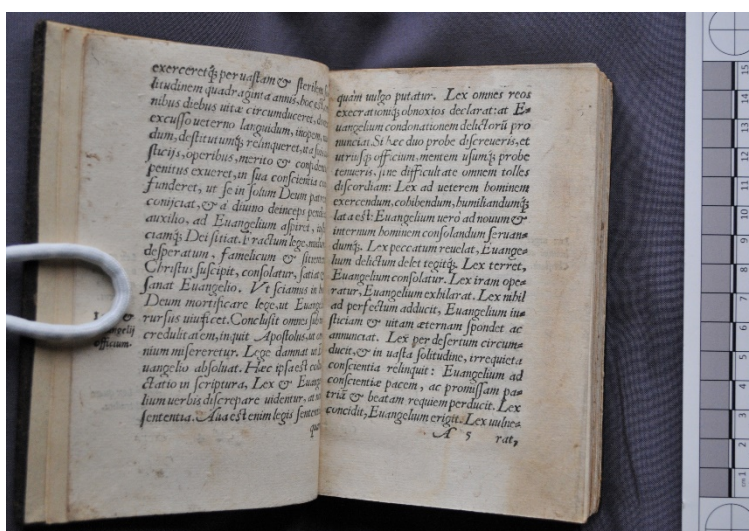 exerceretq́; per uastam & sterilem
litudinem quadraginta annis, hoc est
nibus diebus uitæ circumduceret,
excusso ueterno languidum, inopem,
dum, destitutumq́; relinqueret, ut a
stucijs, operibus, merito &
penitus exueret, in sua conscientia
funderet, ut se in solum Deum
conijciat, & a diuino deinceps
auxilio, ad Euangelium aspiret,
ciamq́; Dei sitiat. Fractum lege,
desperatum, famelicum &
Christus suscipit, consolatur,
sanat Euangelio. Vt sciamus
Deum mortificare lege, ut
rursus uiuificet. Conclusit omnes sub
credulitatem, inquit Apostolus, ut
nium misereretur. Lege damnat ut
uangelio absoluat. Hæc ipsa est
ctatio in scriptura, Lex &
lium uerbis discrepare uidentur, at
sententia. Alia est enim legis
&
officium.
quàm uulgo putatur. Lex omnes reos
execrationiq́; obnoxios declarat: at E⸗
uangelium condonationem delictorū pro
nunciat. Si hæc duo probe discreueris, et
utriusq́; officium, mentem usumq́; probe
tenueris, sine difficultate omnem tolles
discordiam: Lex ad ueterem hominem
exercendum, cohibendum, humiliandumq́;
lata est: Euangelium uerò ad nouum &
internum hominem consolandum seruan⸗
dumq́;. Lex peccatum reuelat, Euange⸗
lium delictum delet tegitq́;. Lex terret,
Euangelium consolatur. Lex iram ope⸗
ratur, Euangelium exhilarat. Lex nihil
ad perfectum adducit, Euangelium iu⸗
sticiam & uitam æternam spondet ac
annunciat. Lex per desertum circum⸗
ducit, & in uasta solitudine, irrequieta
conscientia relinquit: Euangelium ad
conscientiæ pacem, ac promissam pa⸗
triā & beatam requiem perducit. Lex
concidit, Euangelium erigit. Lex uulne⸗
A 5 rat,